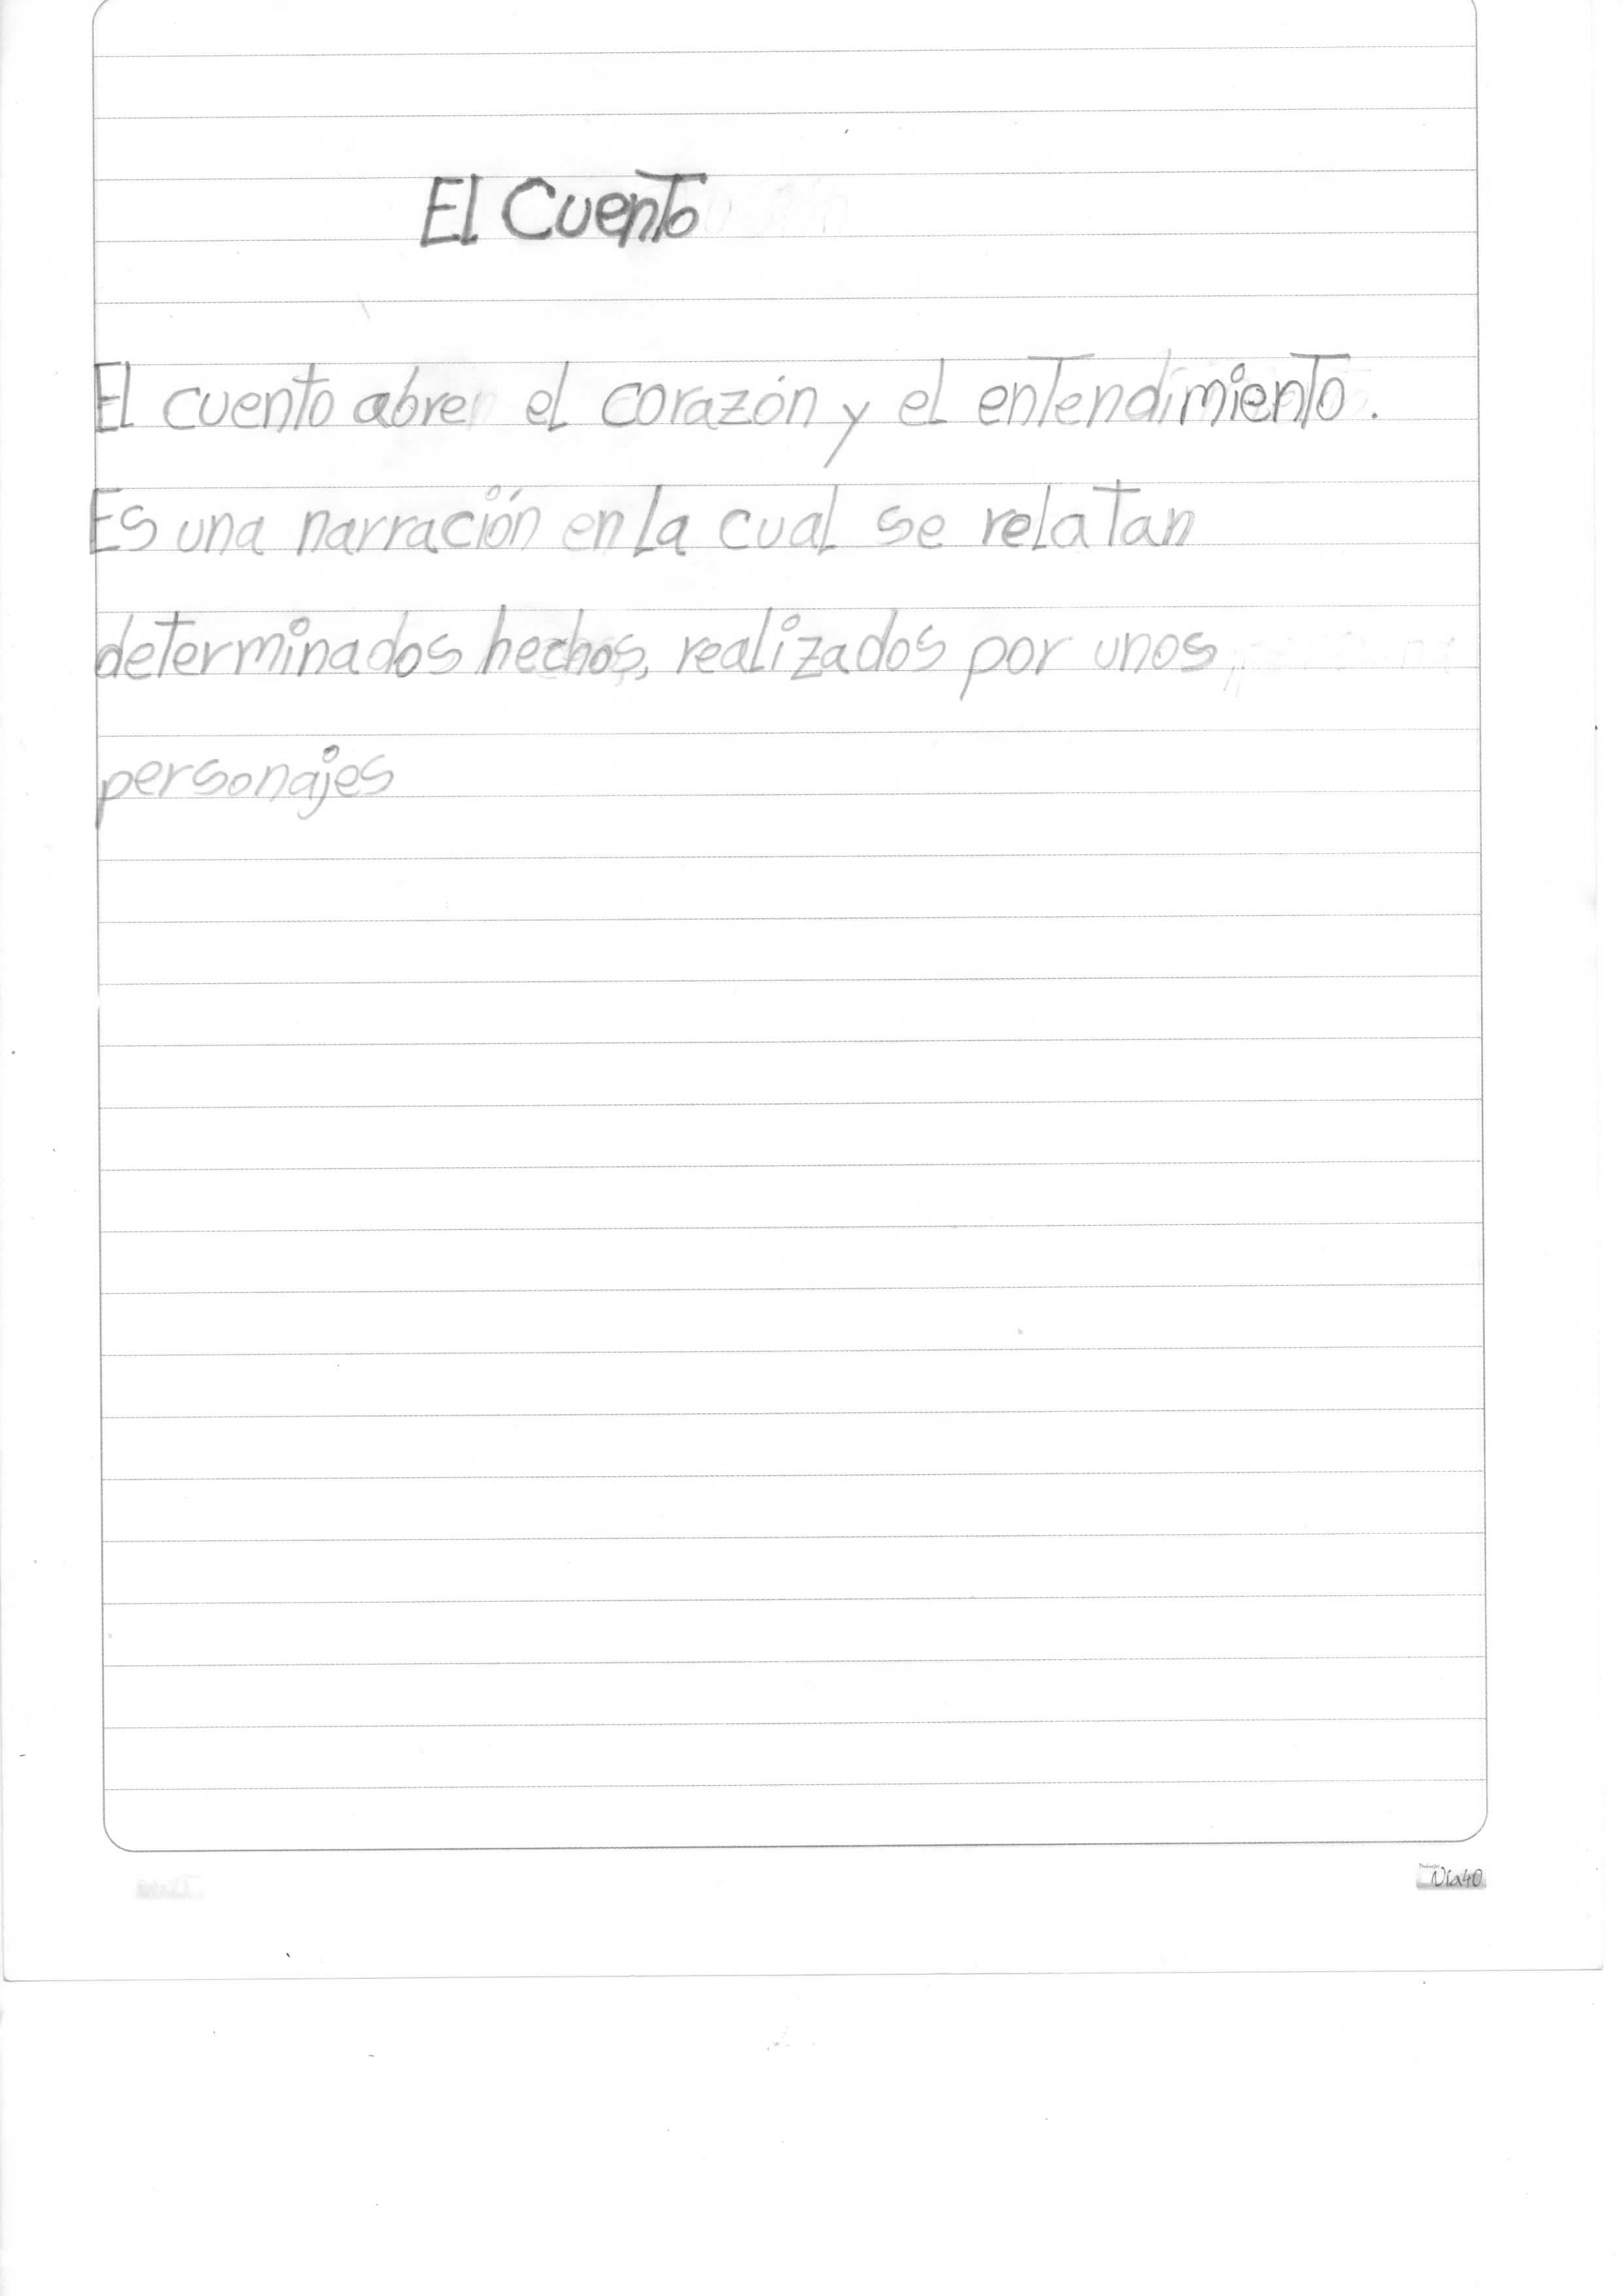 El Cuento
El cuento abre el corazón y el entendimiento.
Es una narración en la cual se relatan
determinados hechos, realizados por unos
personajes
Vía40